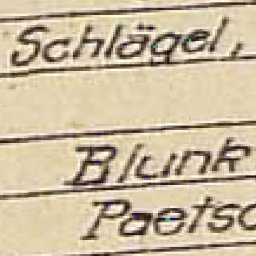 Schlägel,
Blunk
Paetsc